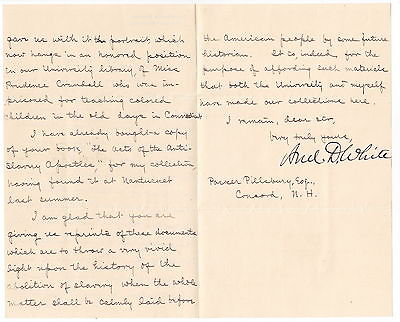 gave us with it the portrait, which
now hangs in an honored position
in our University library, of Miss
Prudence Crandall who was im-
prisoned for teaching colored
children in the old days in Connecticut
I have already bought a copy
of your book, "The Acts of the Anti-
Slavery Apostles," for my collection
having found it at Nantucket
last summer.
I am glad that you are
giving us reprints of these documents
which are to throw a very vivid
light upon the history of the
abolition of slavery when the whole
matter shall be calmly laid before
the American people by some future
historian. It is, indeed, for the
purpose of affording such materials
that both the University and myself
have made our collections here.
I remain, dear sir,
Very truly yours,
And. D. White
Parker Pillsbury, Esq.,
Concord, N. H.